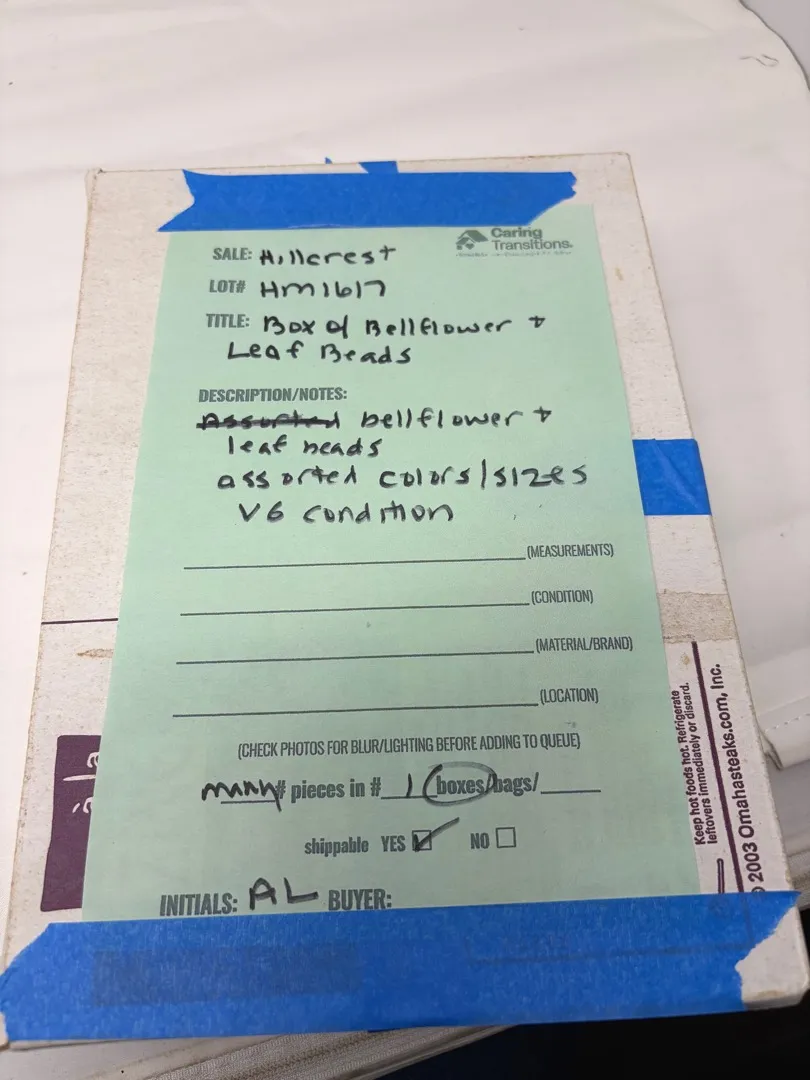 Caring
Transitions.
SALE: Hillcrest
LOT# HM1617
TITLE: Box of Bellflower +
Leaf Beads
DESCRIPTION/NOTES:
Assorted bellflower +
leaf beads
assorted colors/sizes
VG condition
(MEASUREMENTS)
(CONDITION)
(MATERIAL/BRAND)
(LOCATION)
(CHECK PHOTOS FOR BLUR/LIGHTING BEFORE ADDING TO QUEUE)
many # pieces in # 1 boxes/bags/
shippable YES NO
INITIALS: AL BUYER:
à la
Keep hot foods hot. Refrigerate
leftovers immediately or discard.
2003 Omahasteaks.com, Inc.